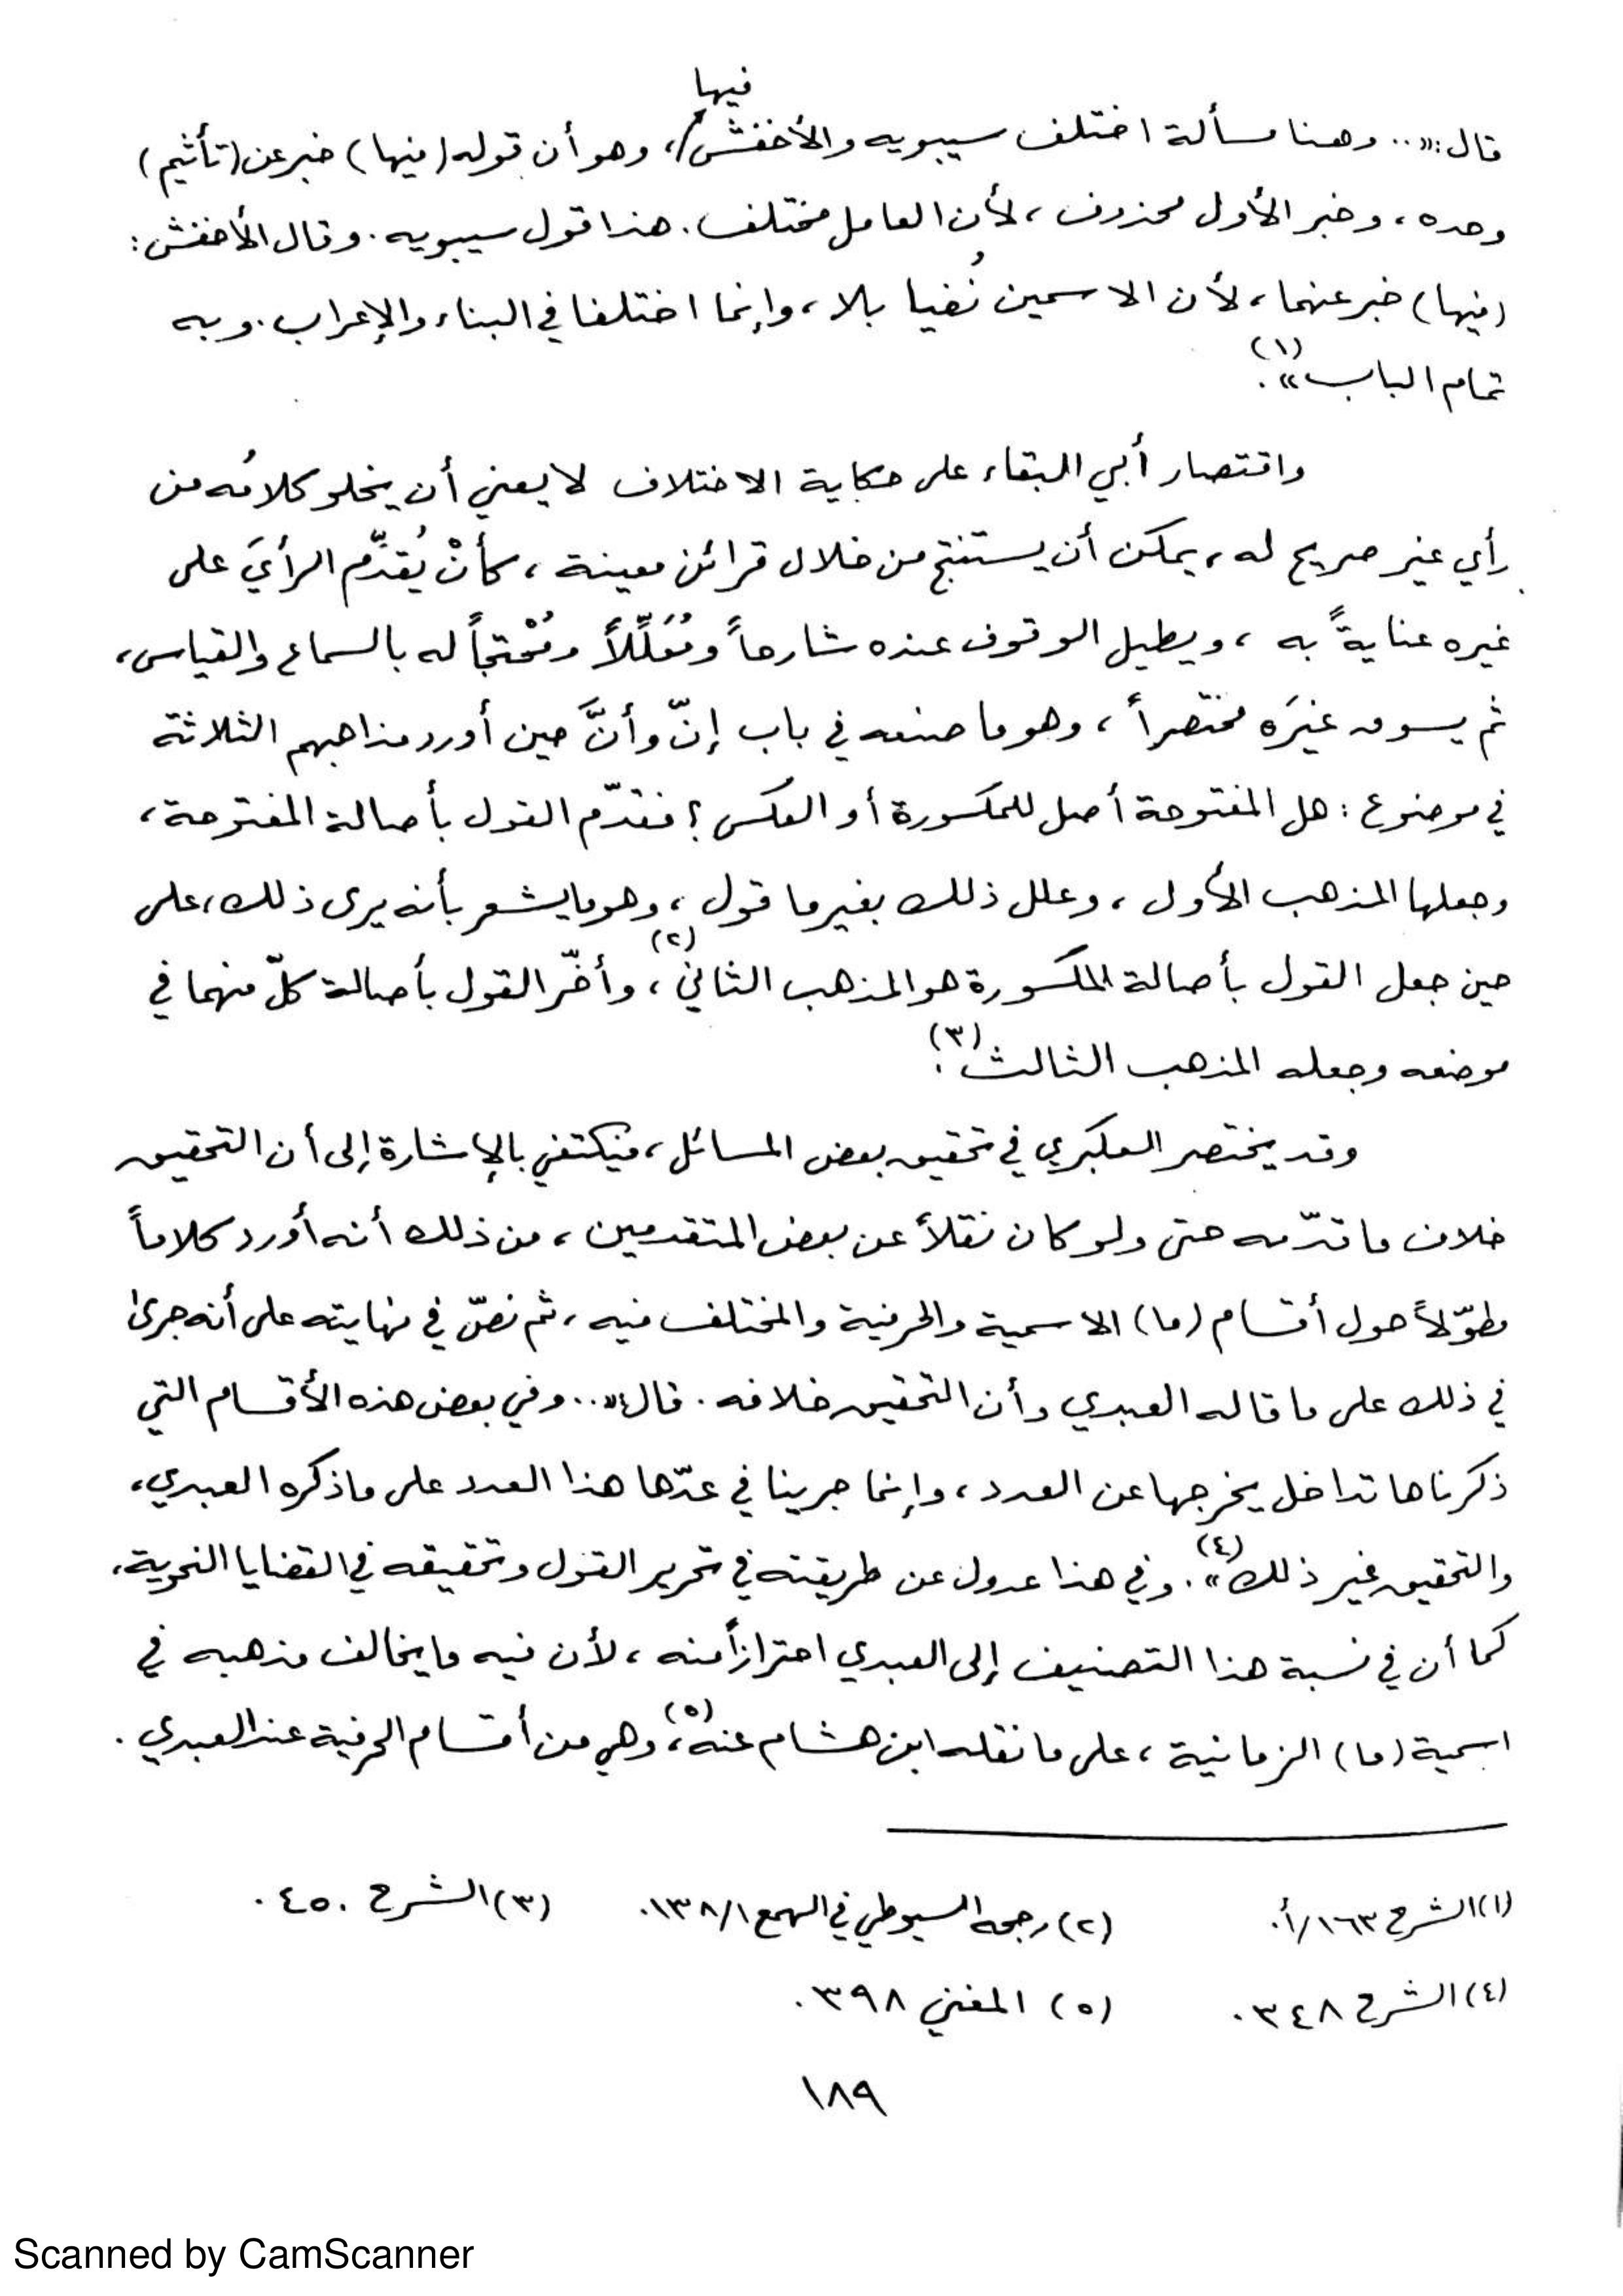 قال: «.. وهنا مسألة اختلف سيبويه والأخفش فيها، وهو أن قوله (فيها) خبر عن (تأثيم)
وحده، وخبر الأول محذوف، لأن العامل مختلف. هذا قول سيبويه. وقال الأخفش:
(فيها) خبر عنهما، لأن الاسمين نُفيا بلا، وإنما اختلفا في البناء والإعراب. وبه
تمام الباب»(١).
واقتصار أبي البقاء على حكاية الاختلاف لا يعني أن يخلو كلامُه من
رأي غير صريح له، يمكن أن يستنتج من خلال قرائن معينة، كأنْ يُقدِّم الرأيَ على
غيره عنايةً به، ويطيل الوقوف عنده شارحاً ومُعَلِّلاً ومُحْتجاً له بالسماع والقياس،
ثم يسوق غيرَه مختصراً، وهو ما صنعه في باب إنّ وأنَّ حين أورد مذاهبهم الثلاثة
في موضوع: هل المفتوحة أصل للمكسورة أو العكس؟ فقدّم القول بأصالة المفتوحة،
وجعلها المذهب الأول، وعلل ذلك بغير ما قول، وهو ما يشعر بأنه يرى ذلك، على
حين جعل القول بأصالة المكسورة هو المذهب الثاني(٢)، وأخّر القول بأصالة كلّ منهما في
موضعه وجعله المذهب الثالث(٣).
وقد يختصر العكبري في تحقيق بعض المسائل، فيكتفي بالإشارة إلى أن التحقيق
خلاف ما قدّمه حتى ولو كان نقلاً عن بعض المتقدمين، من ذلك أنه أورد كلاماً
مطوّلاً حول أقسام (ما) الاسمية والحرفية والمختلف فيه، ثم نصّ في نهايته على أنه جرى
في ذلك على ما قاله العبدي وأن التحقيق خلافه. قال: «.. وفي بعض هذه الأقسام التي
ذكرناها تداخل يخرجها عن العدد، وإنما جرينا في عدّها هذا العدد على ما ذكره العبدي،
والتحقيق غير ذلك»(٤). وفي هذا عدول عن طريقته في تحرير القول وتحقيقه في القضايا النحوية،
كما أن في نسبة هذا التصنيف إلى العبدي احترازاً منه، لأن فيه ما يخالف مذهبه في
اسمية (ما) الزمانية، على ما نقله ابن هشام عنه(٥)، وهي من أقسام الحرفية عند العبدي.
(١) الشرح ١٦٣/أ. (٢) رجحه السيوطي في الهمع ١٣٨/١. (٣) الشرح ٤٥٠.
(٤) الشرح ٣٤٨. (٥) المغني ٣٩٨.
١٨٩
Scanned by CamScanner